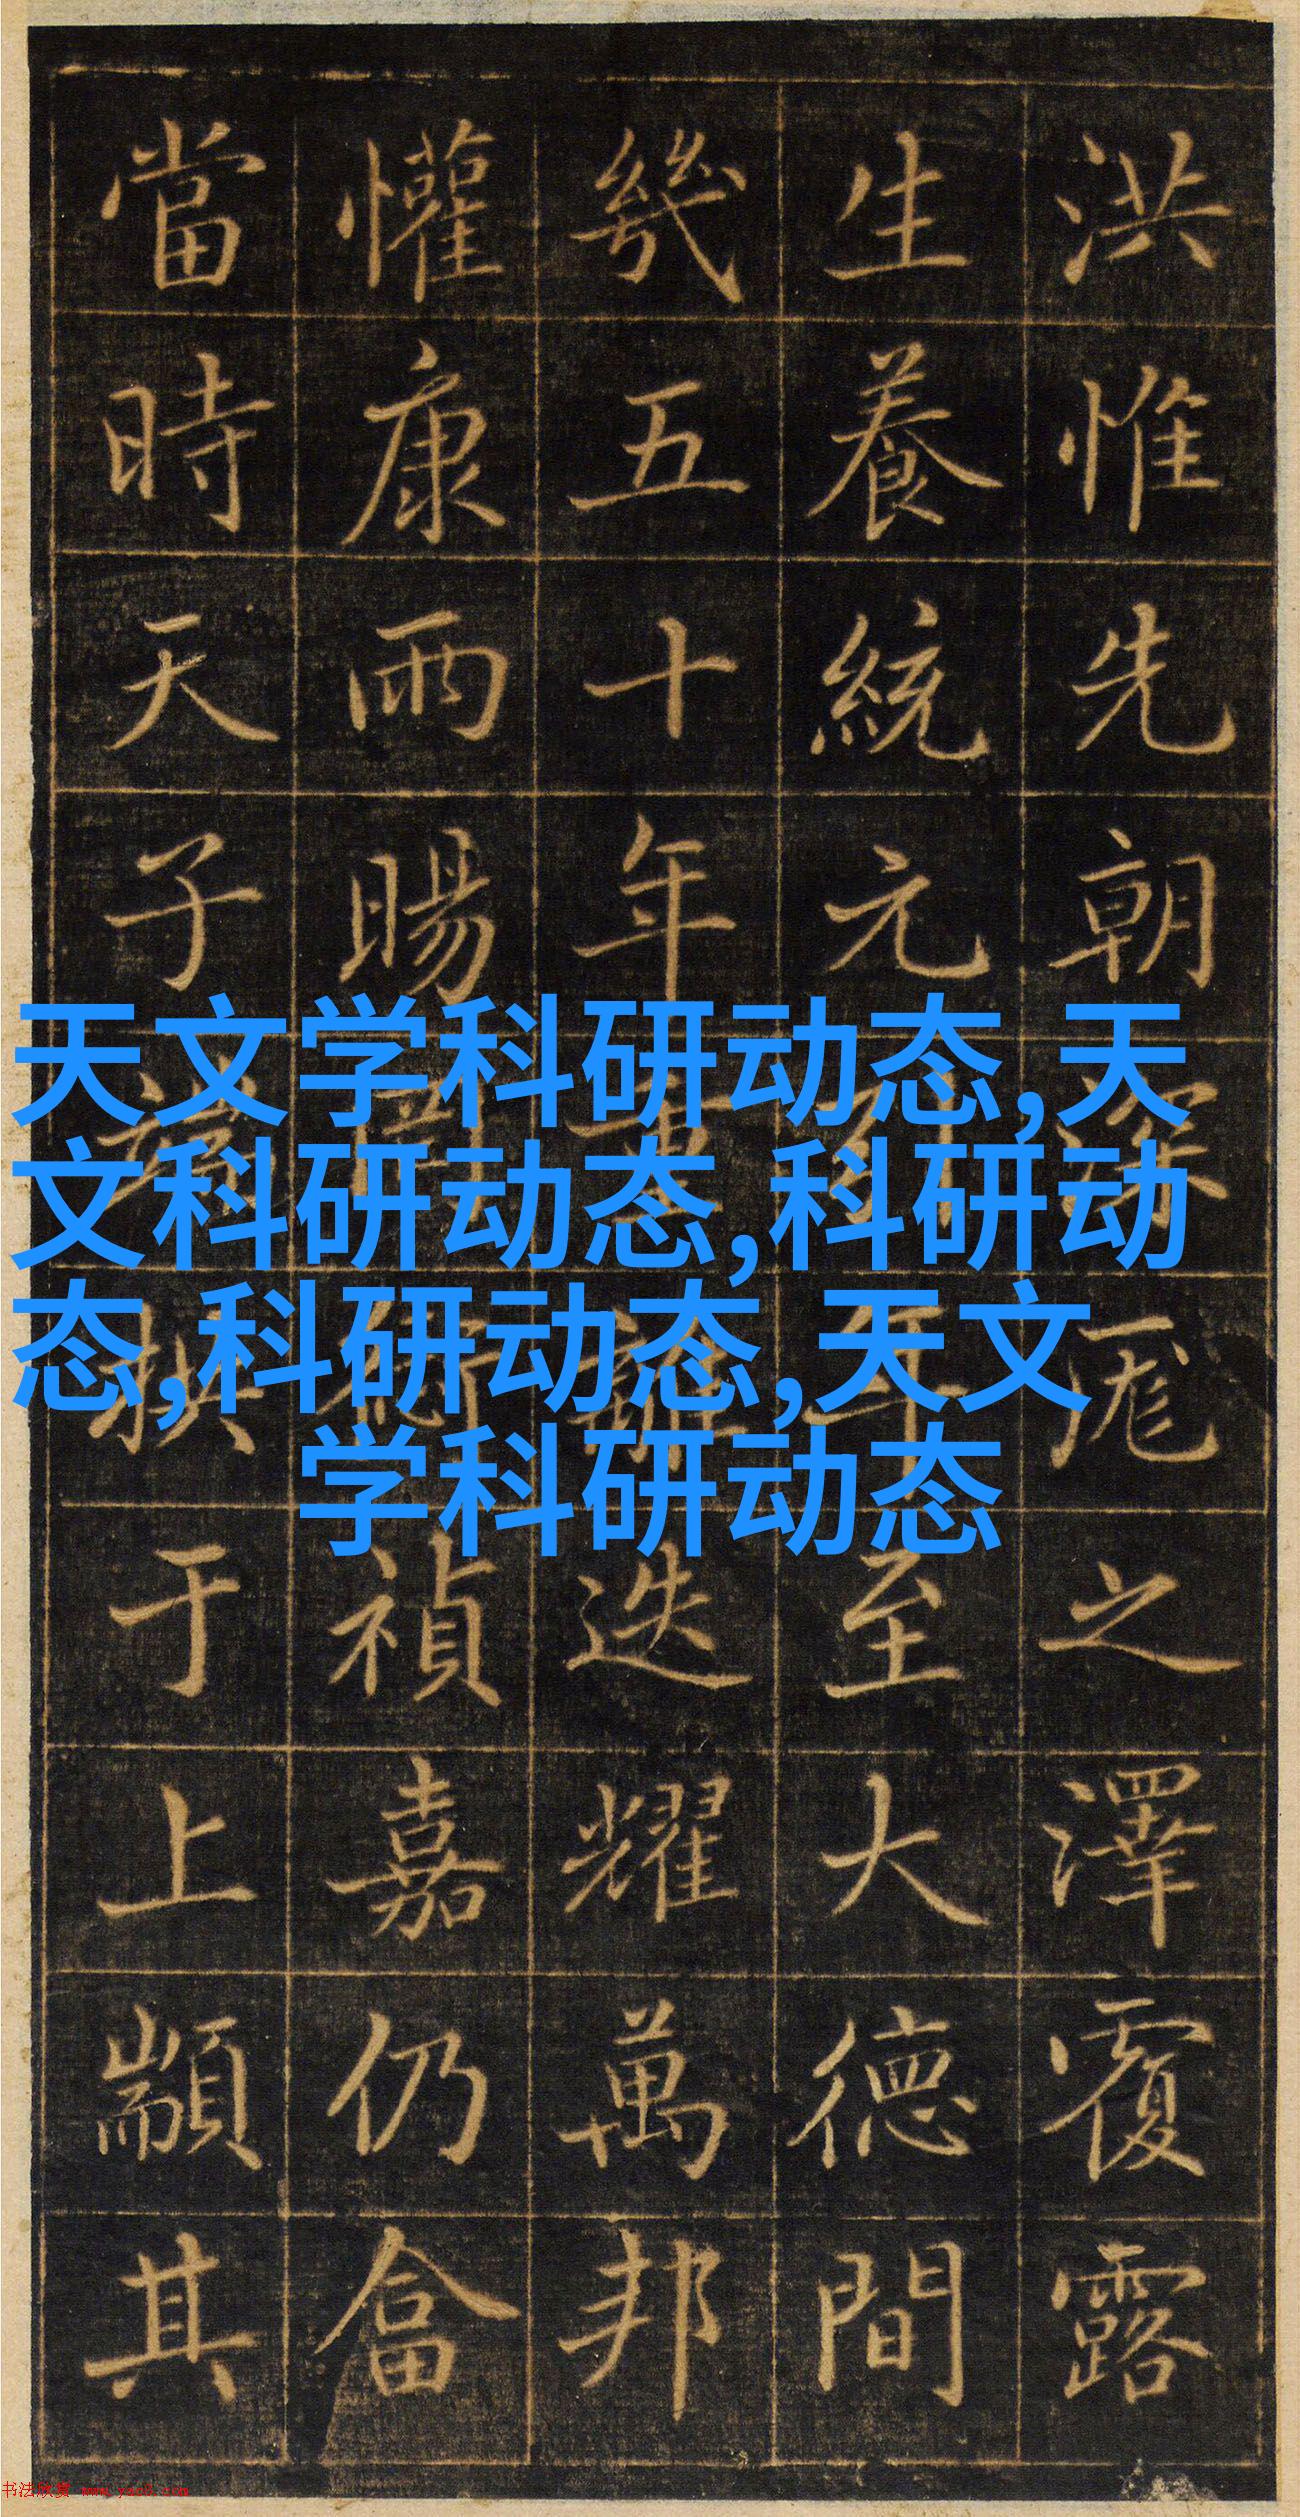 洪惟先朝深之澤覆露
生養統元年至大德間
幾五十年重離迭耀萬邦
懽康雨暘禎嘉仍畣
當時天子端拱于上顒其
天文学科研动态,天
文科研动态,科研动
态,科研动态,天文
学科研动态
书法欣赏 www.yac8.com